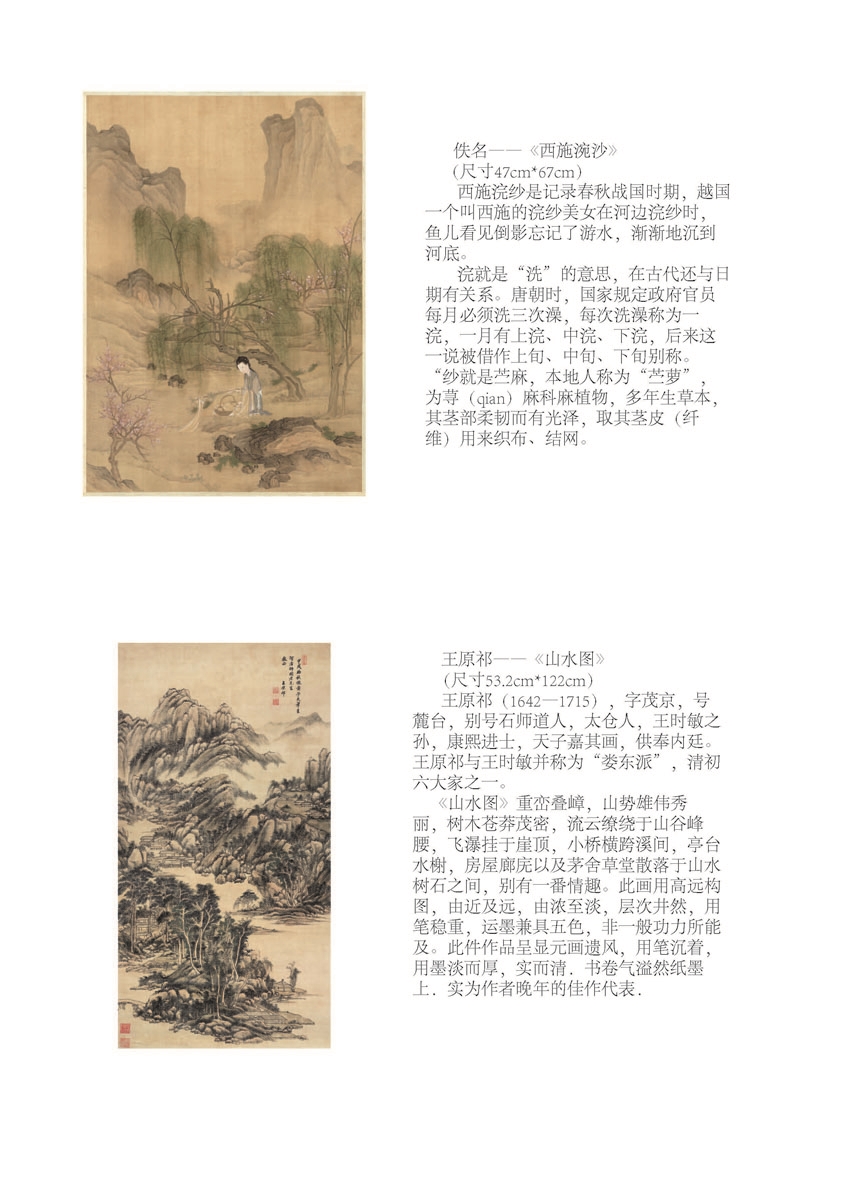 佚名——《西施涴沙》
（尺寸47cm*67cm）
西施浣纱是记录春秋战国时期，越国
一个叫西施的浣纱美女在河边浣纱时，
鱼儿看见倒影忘记了游水，渐渐地沉到
河底。
浣就是“洗”的意思，在古代还与日
期有关系。唐朝时，国家规定政府官员
每月必须洗三次澡，每次洗澡称为一
浣，一月有上浣、中浣、下浣，后来这
一说被借作上旬、中旬、下旬别称。
“纱就是苎麻，本地人称为“苎萝”，
为荨（qian）麻科麻植物，多年生草本，
其茎部柔韧而有光泽，取其茎皮（纤
维）用来织布、结网。
王原祁——《山水图》
（尺寸53.2cm*122cm）
王原祁（1642—1715），字茂京，号
麓台，别号石师道人，太仓人，王时敏之
孙，康熙进士，天子嘉其画，供奉内廷。
王原祁与王时敏并称为“娄东派”，清初
六大家之一。
《山水图》重峦叠嶂，山势雄伟秀
丽，树木苍莽茂密，流云缭绕于山谷峰
腰，飞瀑挂于崖顶，小桥横跨溪间，亭台
水榭，房屋廊庑以及茅舍草堂散落于山水
树石之间，别有一番情趣。此画用高远构
图，由近及远，由浓至淡，层次井然，用
笔稳重，运墨兼具五色，非一般功力所能
及。此件作品呈显元画遗风，用笔沉着，
用墨淡而厚，实而清．书卷气溢然纸墨
上．实为作者晚年的佳作代表．